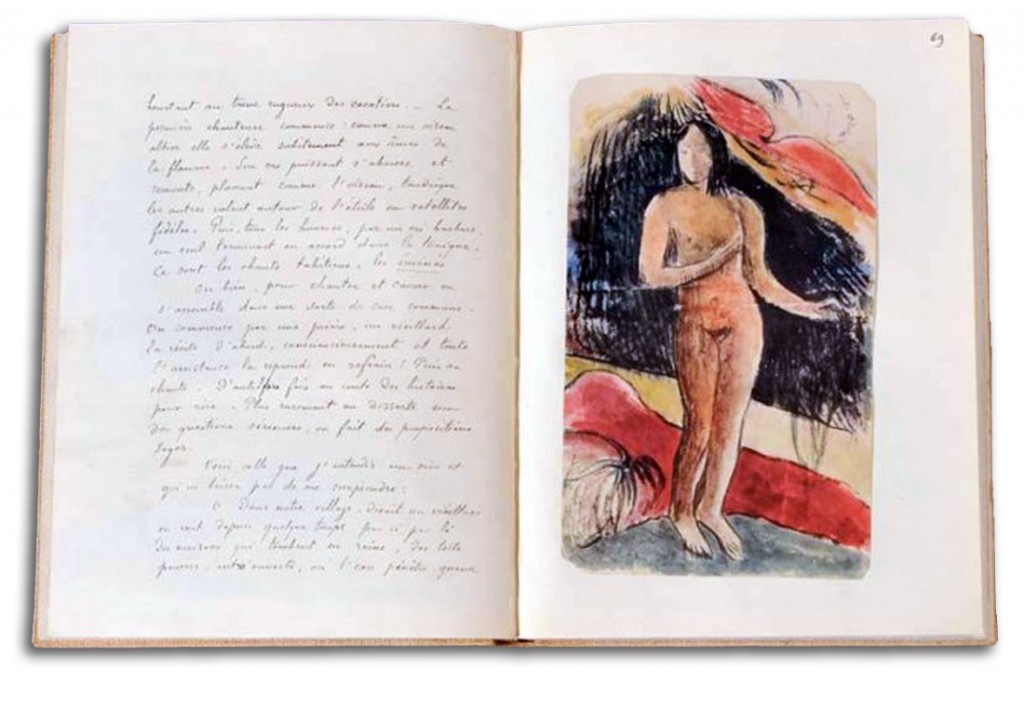 heurtant au tronc rugueux des cocotiers. — La
première chanteuse commence : comme un oiseau
altier elle s'élève subitement aux cimes de
la flamme. Son cri puissant s'abaisse et
remonte, planant comme l'oiseau, tandis que
les autres volent autour de l'étoile en satellites
fidèles. Puis, tous les hommes, par un cri barbare,
un seul terminent en accord dans la tonique.
Ce sont les chants tahitiens, les iménés
Ou bien, pour chanter et causer on
s'assemble dans une sorte de case commune.
On commence par une prière, un vieillard
la récite d'abord, consciencieusement et toute
l'assistance la reprend en refrain. Puis on
chante. D'autres fois on conte des histoires
pour rire. Plus rarement on disserte sur
des questions sérieuses, on fait des propositions
sages.
Voici celle que j'entendis un soir et
qui ne laissa pas de me surprendre :
« Dans notre village, disait un vieillard
on voit depuis quelque temps par ci par là
des maisons qui tombent en ruine, des toits
pourris, entr'ouverts, où l'eau pénètre quand
69